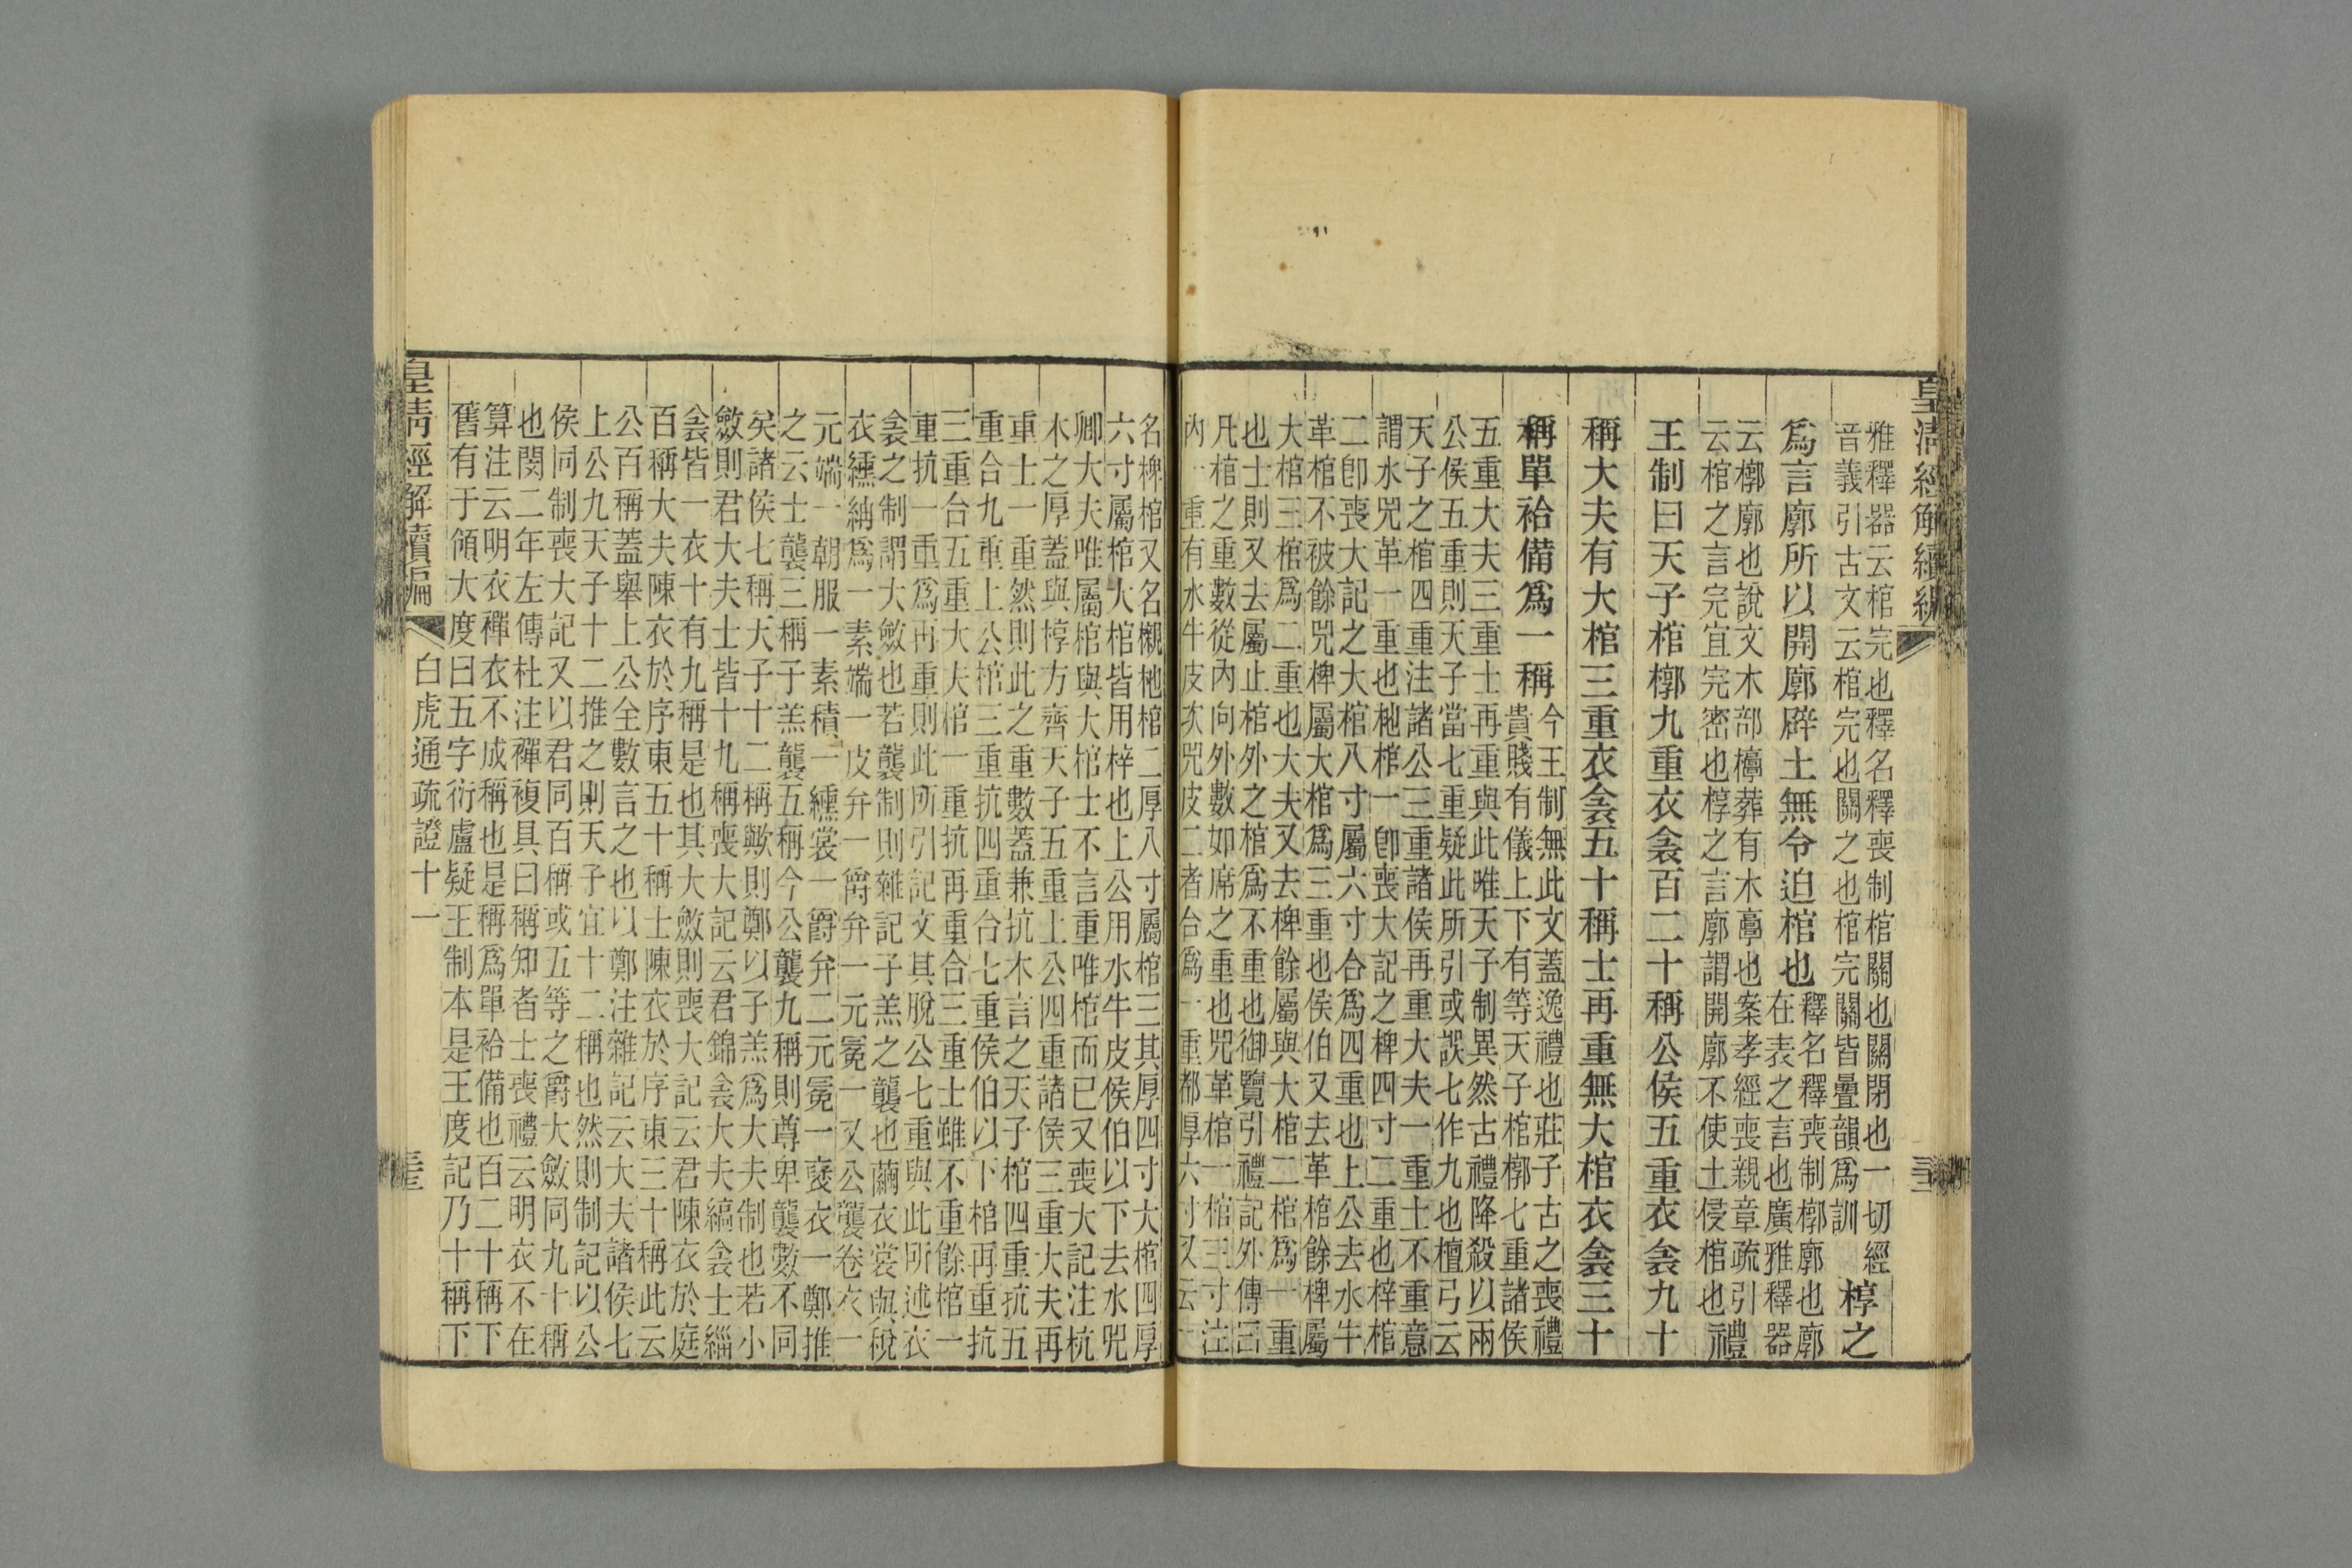 皇清經解續編
雅釋器云棺完也釋名釋喪制棺關也關閉也一切經
音義引古文云棺完也關之也棺完關皆疊韻爲訓
椁之
爲言廓所以開廓辟土無令迫棺也
釋名釋喪制槨廓也廓
在表之言也廣雅釋器
云槨廓也說文木部槨葬有木𩫏也案孝經喪親章疏引
云棺之言完宜完密也椁之言廓謂開廓不使土侵棺也
禮
王制曰天子棺槨九重衣衾百二十稱公侯五重衣衾九十
稱大夫有大棺三重衣衾五十稱士再重無大棺衣衾三十
稱單袷備爲一稱
今王制無此文蓋逸禮也莊子古之喪禮
貴賤有儀上下有等天子棺槨七重諸侯
五重大夫三重士再重與此唯天子制異然古禮降殺以兩
公侯五重則天子當七重疑此所引或誤七作九也檀弓云
天子之棺四重注諸公三重諸侯再重大夫一重士不重意
謂水兕革一重也杝棺一卽喪大記之椑四寸二重也梓棺
二卽喪大記之大棺八寸屬六寸合爲四重也上公去水牛
革棺不被餘兕椑屬大棺爲三重也侯伯又去革棺餘椑屬
大棺三棺爲二重也大夫又去椑餘屬與大棺二棺爲一重
也士則又去屬止棺外之棺爲不重也御覽引禮記外傳曰
凡棺之重數從內向外數如席之重也兕革棺一棺三寸注
內一重有水牛皮次兕皮二者合爲一重都厚六寸又云二
名椑棺又名櫬杝棺二厚八寸屬棺三其厚四寸大棺四厚
六寸屬棺大棺皆用梓也上公用水牛皮侯伯以下去水兕
卿大夫唯屬棺與大棺士不言重唯棺而已又喪大記注杭
木之厚蓋與椁方齊天子五重上公四重諸侯三重大夫再
重士一重然則此之重數蓋兼抗木言之天子棺四重抗五
重合九重上公棺三重抗四重合七重侯伯以下棺再重抗
三重合五重大夫棺一重抗再重合三重士雖不重餘棺一
重抗一重爲再重則此所引記文其脫公七重與此所述衣
衾之制謂大斂也若襲制則雜記子羔之襲也繭衣裳與稅
衣纁袡爲一素端一皮弁一爵弁一元冕一又公襲卷衣一
元端一朝服一素積一纁裳一爵弁二元冕一褎衣一鄭推
之云士襲三稱子羔襲五稱今公襲九稱則尊卑襲數不同
矣諸侯七稱天子十二稱歟則鄭以子羔爲大夫制也若小
斂則君大夫士皆十九稱喪大記云君錦衾大夫縞衾士緇
衾皆一衣十有九稱是也其大斂則喪大記云君陳衣於庭
百稱大夫陳衣於序東五十稱士陳衣於序東三十稱此云
公百稱蓋舉上公全數言之也以鄭注雜記云大夫諸侯七
上公九天子十二推之則天子宜十二稱也然則制記以公
侯同制喪大記又以君同百稱或五等之爵大斂同九十稱
也閔二年左傳杜注襌複具曰稱知者士喪禮云明衣不在
算注云明衣襌衣不成稱也是稱爲單袷備也百二十稱下
舊有于傾大度曰五字衍盧疑王制本是王度記乃十稱下
皇清經解續編
白虎通疏證十一